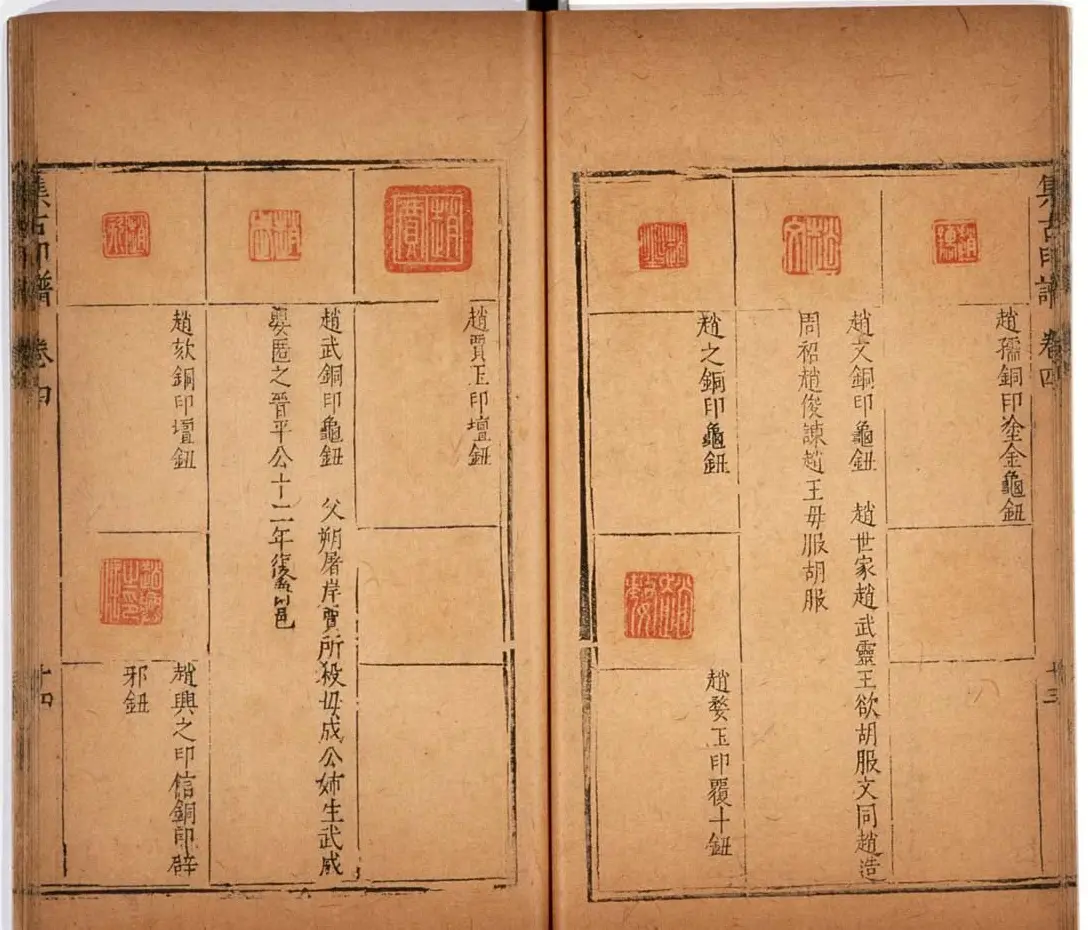 集古印譜 卷四 十三
趙孺
趙孺銅印塗金龜鈕
趙文
趙文銅印龜鈕 趙世家趙武靈王欲胡服文同趙造
周祒趙俊諫趙王毋服胡服
趙之銅印龜鈕
趙婺
趙婺玉印覆十鈕
趙賈
趙賈玉印壇鈕
趙武
趙武銅印龜鈕 父朔屠岸賈所殺毋成公姉生武咸
匿之晉平公十二年復 邑
趙欬銅印壇鈕
趙興之印信銅印辟
邪鈕
集古印譜 卷四 十四